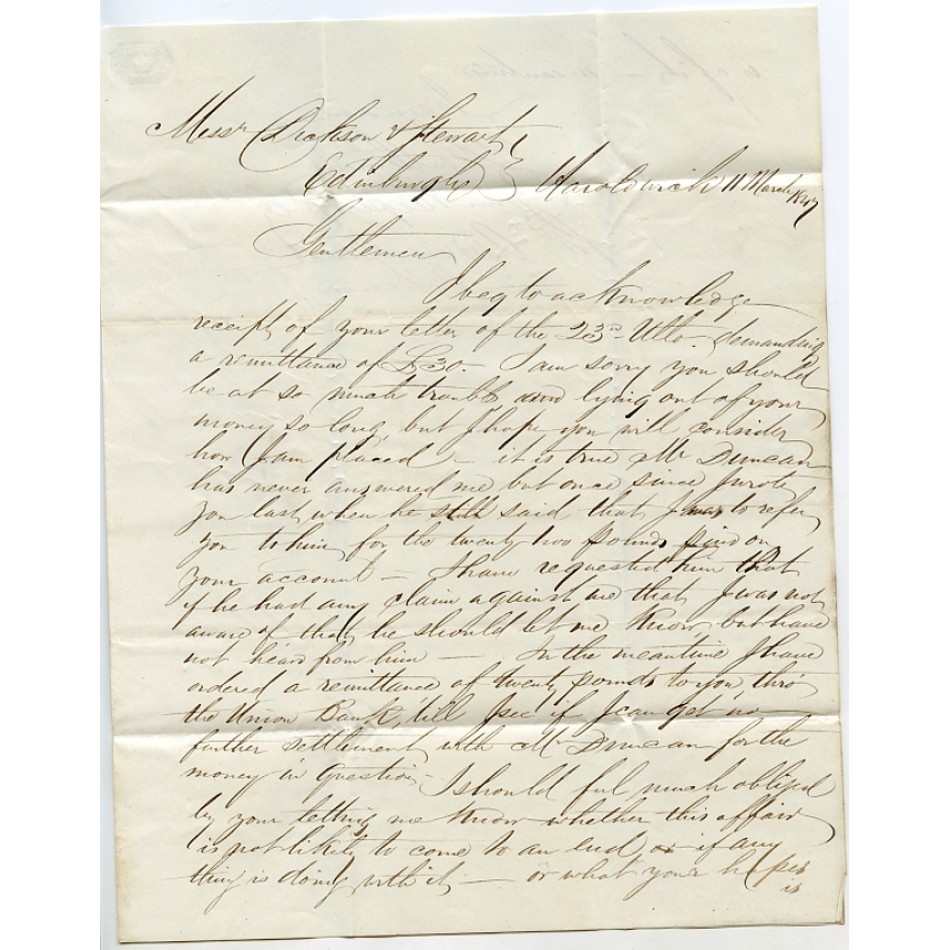 Messrs Dickson & Stewart
Edinburgh } Haroldswick 11 March 1847
Gentlemen
I beg to acknowledge
receipt of your letter of the 23rd Ulto. demanding
a remittance of £30.- I am sorry you should
be at so much trouble and lying out of your
money so long, but I hope you will consider
how I am placed - it is true Mr Duncan
has never answered me but once since I wrote
you last when he still said that I was to refer
you to him for the twenty two pounds paid on
your account - I have requested him that
if he had any claim against me that I was not
aware of that he should let me know, but have
not heard from him - In the meantime I have
ordered a remittance of twenty pounds to you thro'
the Union Bank, 'till I see if I can get no
farther settlement with Mr Duncan for the
money in question - I should feel much obliged
by your letting me know whether this affair
is not likely to come to an end or if any
thing is doing with it - or what your hopes
is